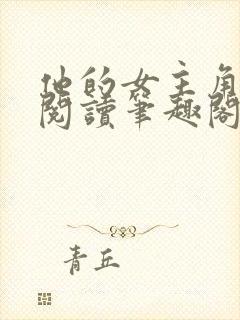 他的女主角
閱讀筆趣閣
青丘